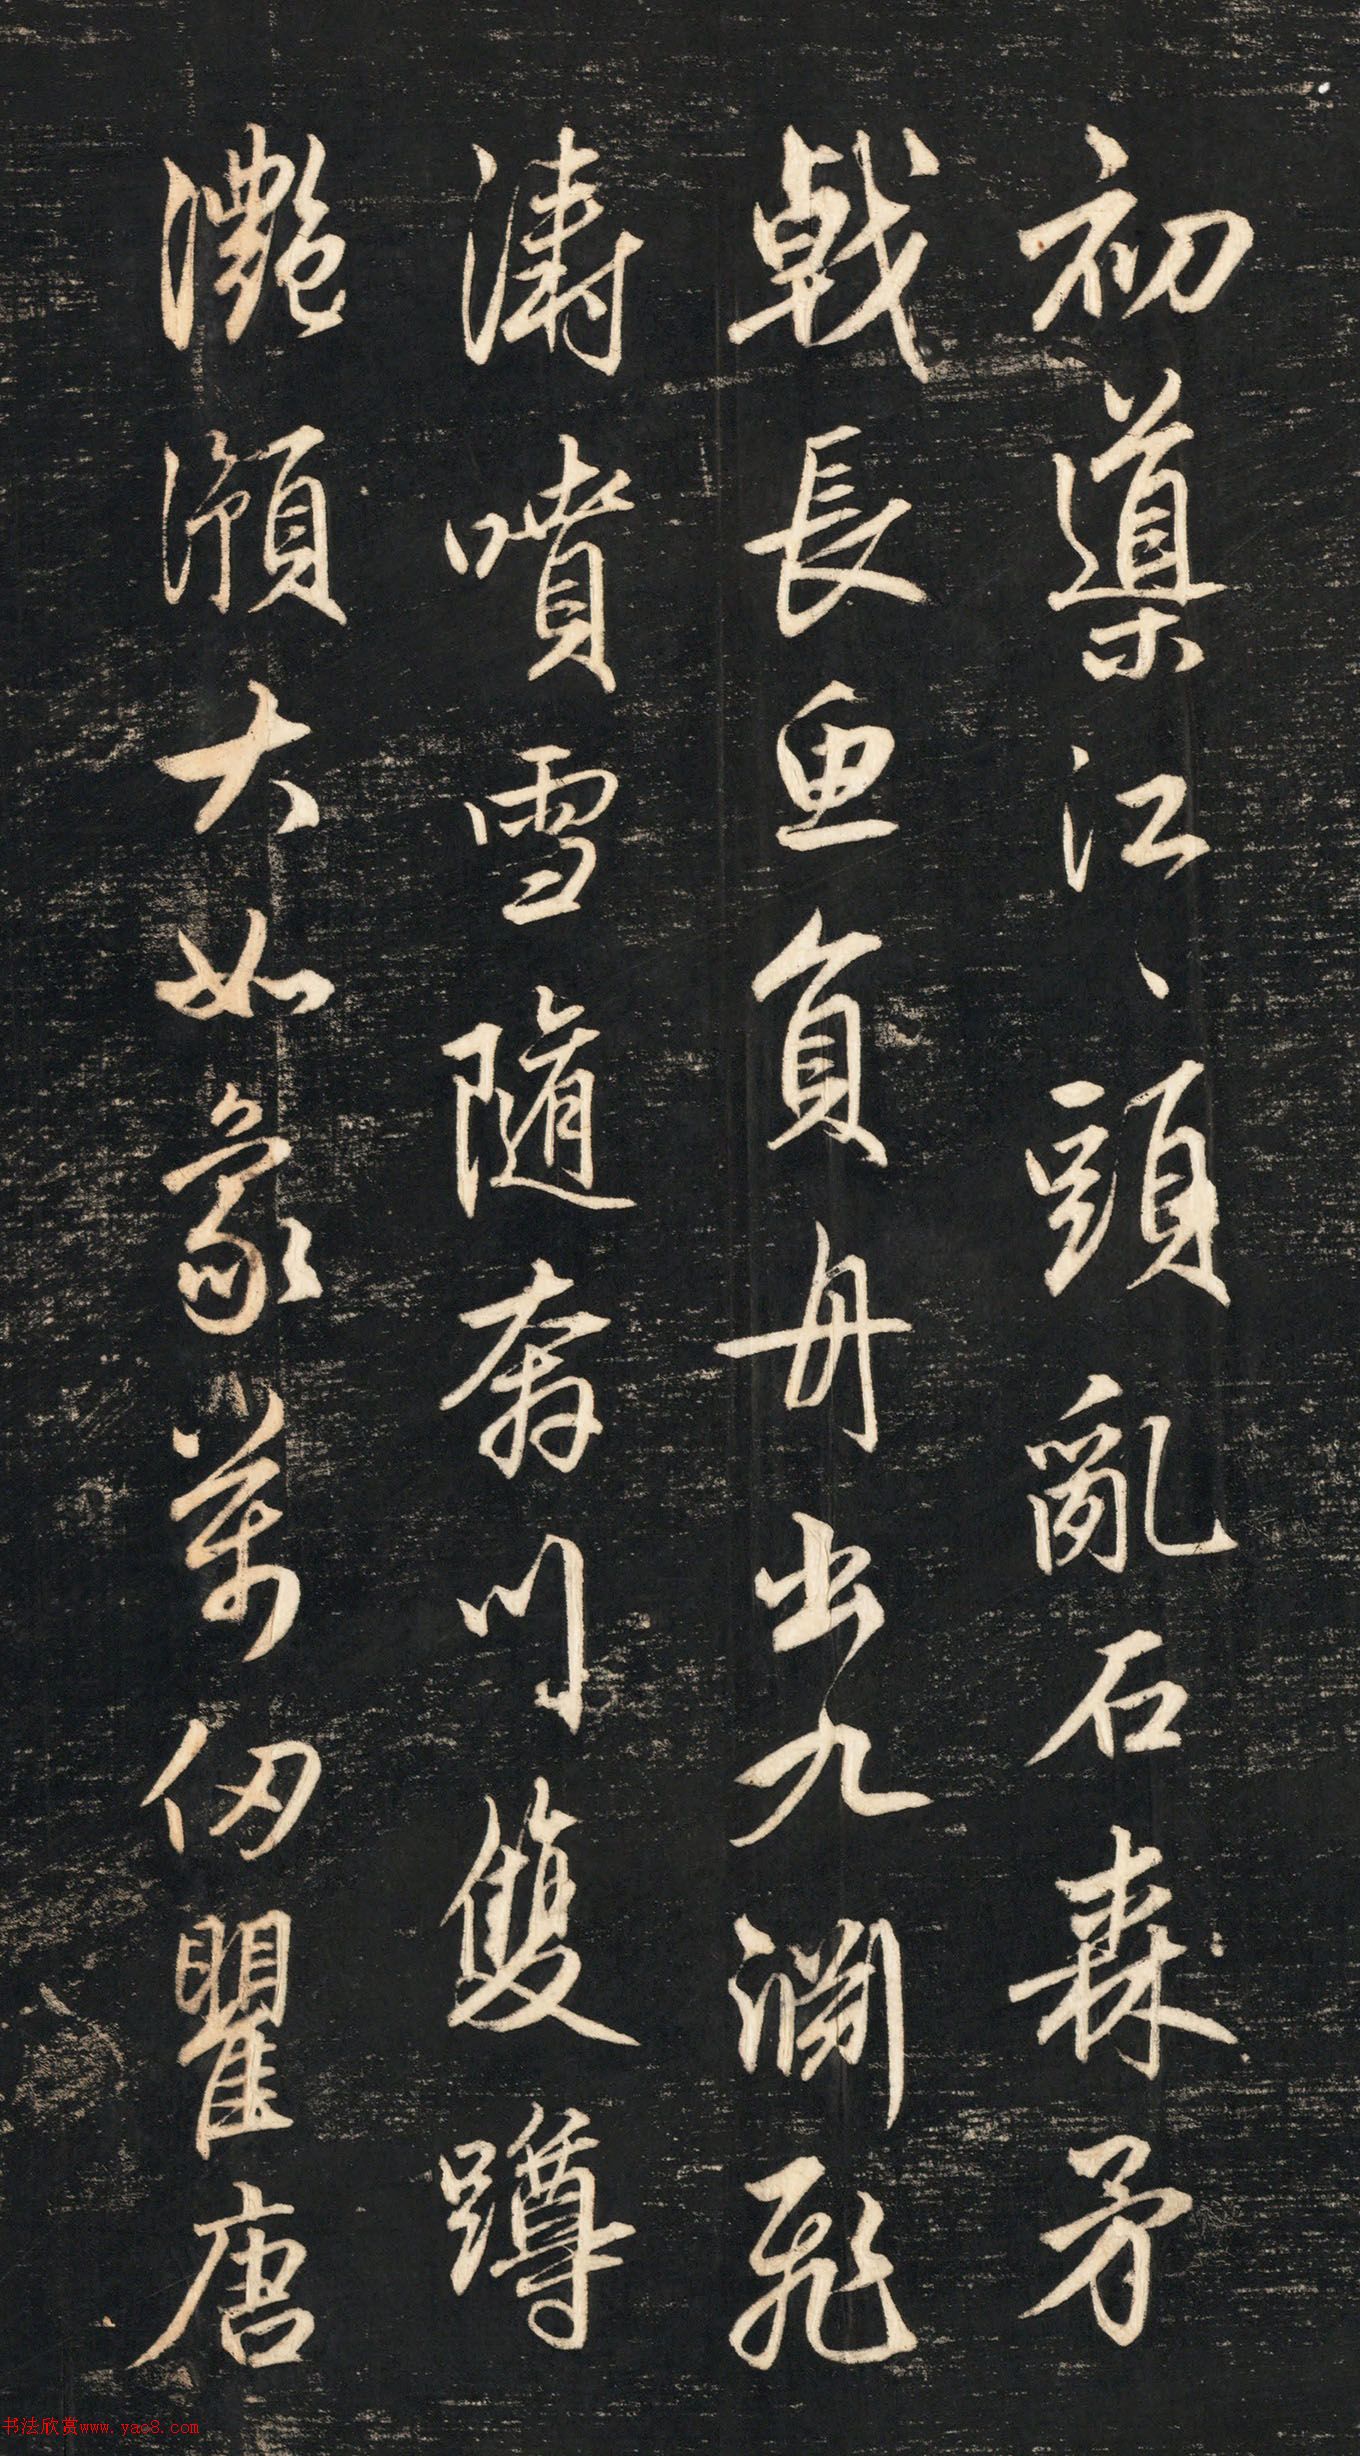 初導江、頭亂石森矛
戟長魚負舟出九淵飛
濤噴雪隨奔川雙蹲
灔澦大如象萬仞瞿唐
书法欣赏www.yac8.com